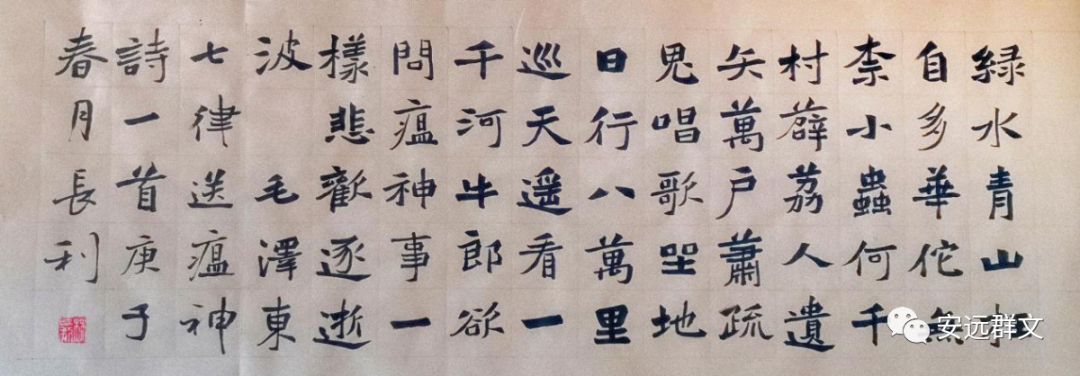 緑水青山
自多華佗無
柰小蟲何千
村薜荔人遺
矢萬户蕭疏
鬼唱歌坐地
日行八萬里
巡天遥看一
千河牛郎欲
問瘟神事一
樣悲歡逐逝
波 毛澤東
七律送瘟神
詩一首庚子
春月長利
安远群文